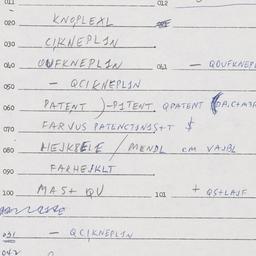 011 012
020 KNOPLEXL
030 CIKNEPLIN
040 OUFKNEPLIN 041 – QOUFKNEPL
050 – QCIKNEPLIN
060 PATENT )-PITENT, QPATENT
070 FARVUS PATENCTINIS+T $
080 HEJKBELE / MENDL cm VAJBL
090 FARHEJKLT
100 MAS+ QU 101 + QS+LAJF
031 – QCIKNEPLIN
042